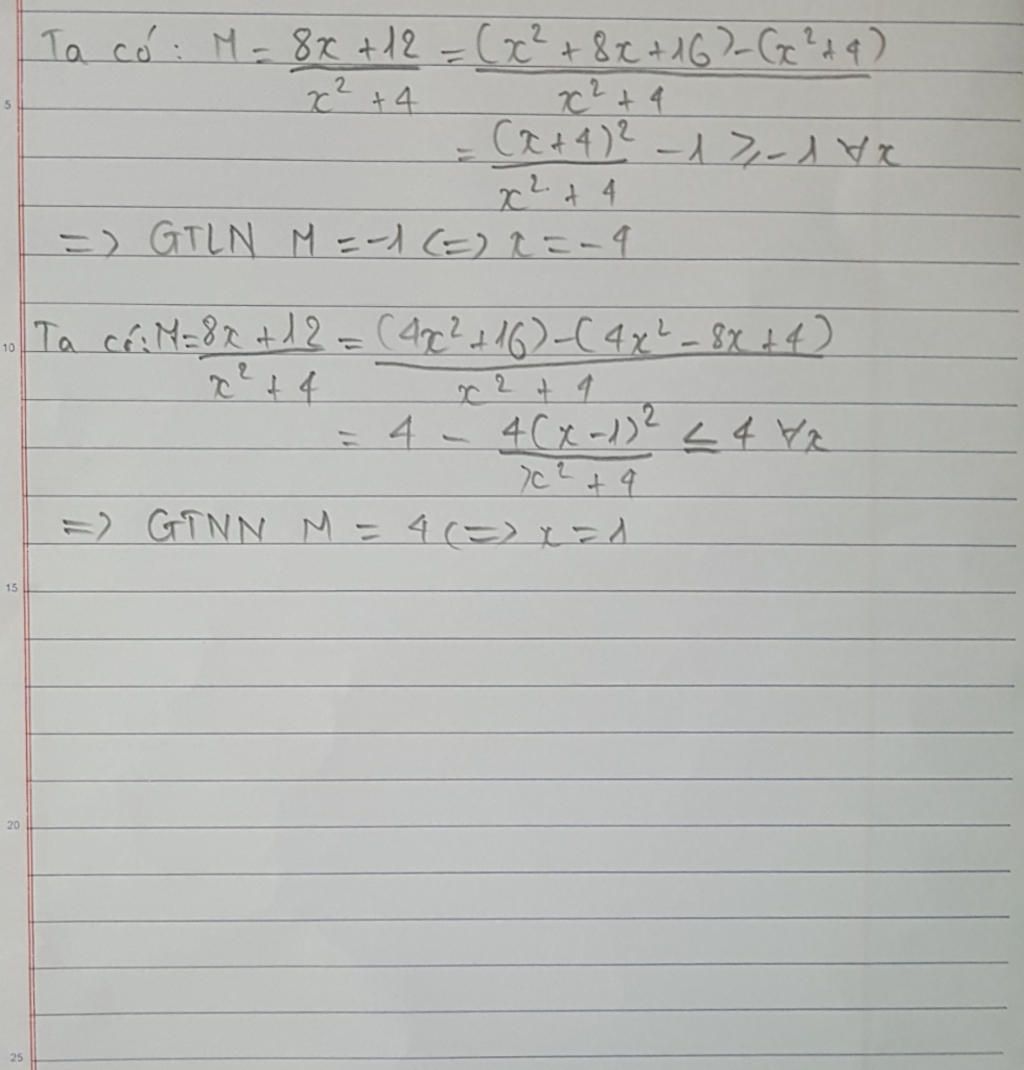 5
10
15
20
25
Ta có: M = (8x + 12)/(x² + 4) = ((x² + 8x + 16) - (x² + 4))/(x² + 4)
= (x + 4)²/(x² + 4) - 1 ⩾ -1 ∀x
=> GTLN M = -1 <=> x = -4
Ta có: M = (8x + 12)/(x² + 4) = ((4x² + 16) - (4x² - 8x + 4))/(x² + 4)
= 4 - 4(x - 1)²/(x² + 4) ≤ 4 ∀x
=> GTNN M = 4 <=> x = 1